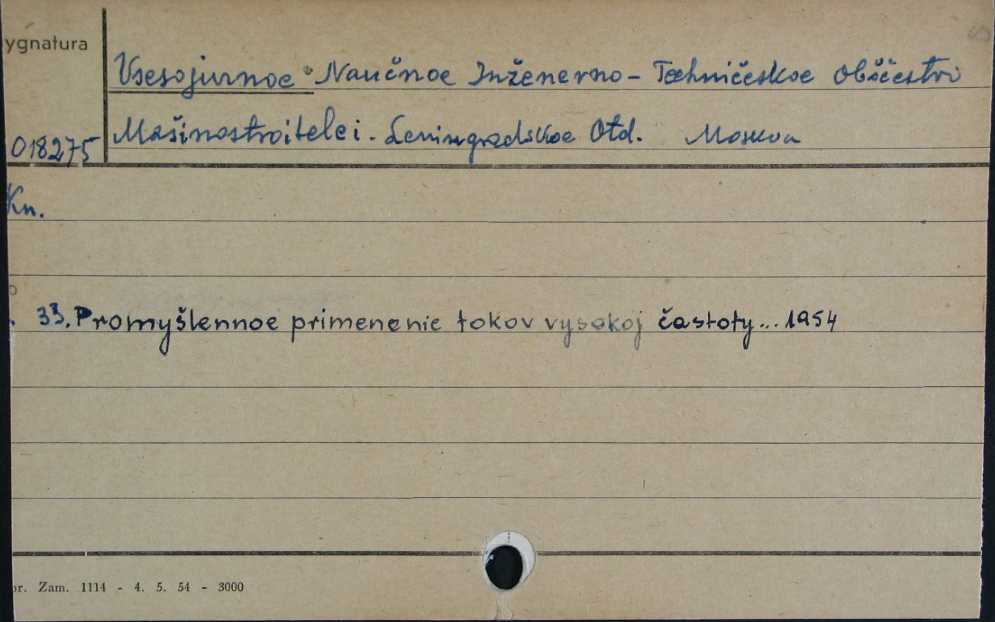 ygnatura
Vsesojuznoe Naučnoe Inženerno - Techničeskoe Obščestvi
018275 Mašinostroitelei. Leningradskoe Otd. Moskva
Kn.
33. Promyšlennoe primenenie tokov vysokoj častoty... 1954
or. Zam. 1114 - 4. 5. 54 - 3000